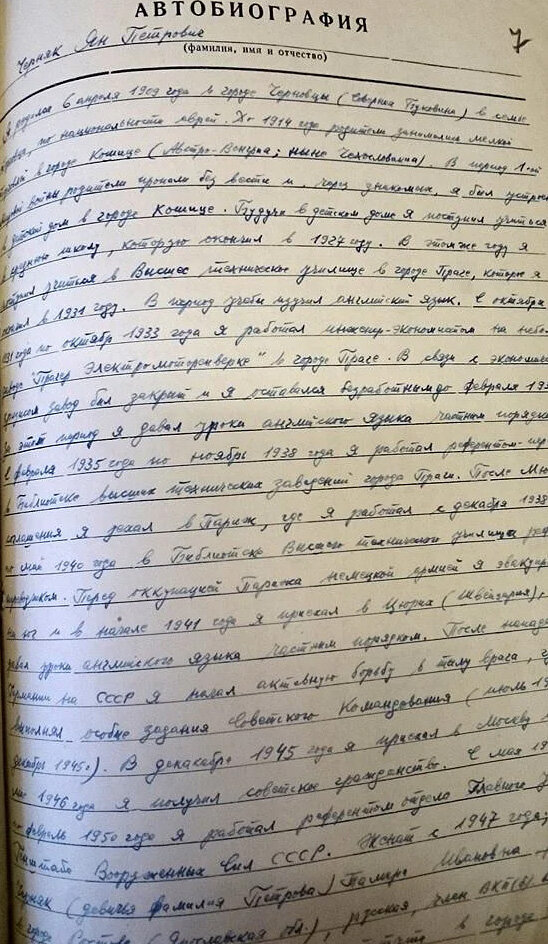 АВТОБИОГРАФИЯ
7
Черняк Ян Петрович
(фамилия, имя и отчество)
Я родился 6 апреля 1909 года в городе Черновцы (Северная Буковина) в семье
по национальности еврей. До 1914 года родители занимались мелкой
в городе Кошице (Австро-Венгрия; ныне Чехословакия). В период 1-ой
войны родители пропали без вести и, через знакомых, я был устроен
в детский дом в городе Кошице. Будучи в детском доме я поступил учиться
в среднюю школу, которую окончил в 1927 году. В этом же году я
поступил учиться в Высшее техническое училище в городе Праге, которое я
окончил в 1931 году. В период учебы изучил английский язык. С октября
1931 года по октябрь 1933 года я работал инженер-экономистом на
заводе "Прагер Электромоторенверке" в городе Праге. В связи с
завод был закрыт и я оставался безработным до февраля
За этот период я давал уроки английского языка частным
С февраля 1935 года по ноябрь 1938 года я работал
в Библиотеке высших технических заведений города Праги. После
соглашения я уехал в Париж, где я работал с декабря 1938
по май 1940 года в Библиотеке Высшего технического училища
Перед оккупацией Парижа немецкой армией я
на юг и в начале 1941 года я приехал в Цюрих (Швейцария),
давал уроки английского языка частным порядком. После
Германии на СССР я начал активную борьбу в тылу врага,
выполнял особые задания Советского Командования (июль
декабрь 1945г). В декабре 1945 года я приехал в Москву
1946 года я получил советское гражданство. С мая
по февраль 1950 года я работал референтом отдела Главного
Штаба Вооруженных Сил СССР. Женат с 1947 года;
Черняк (девичья фамилия Петрова) Тамара Ивановна
русская, член ВКП(б)
в городе